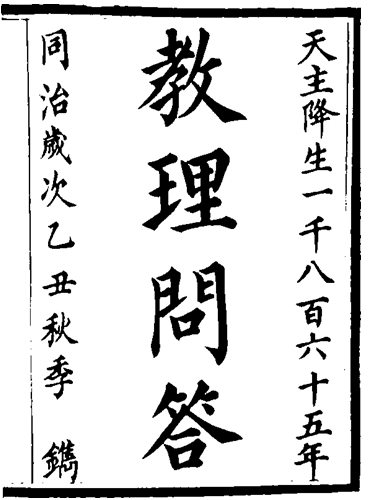 天主降生一千八百六十五年
教理問答
同治歲次乙丑秋季 鐫